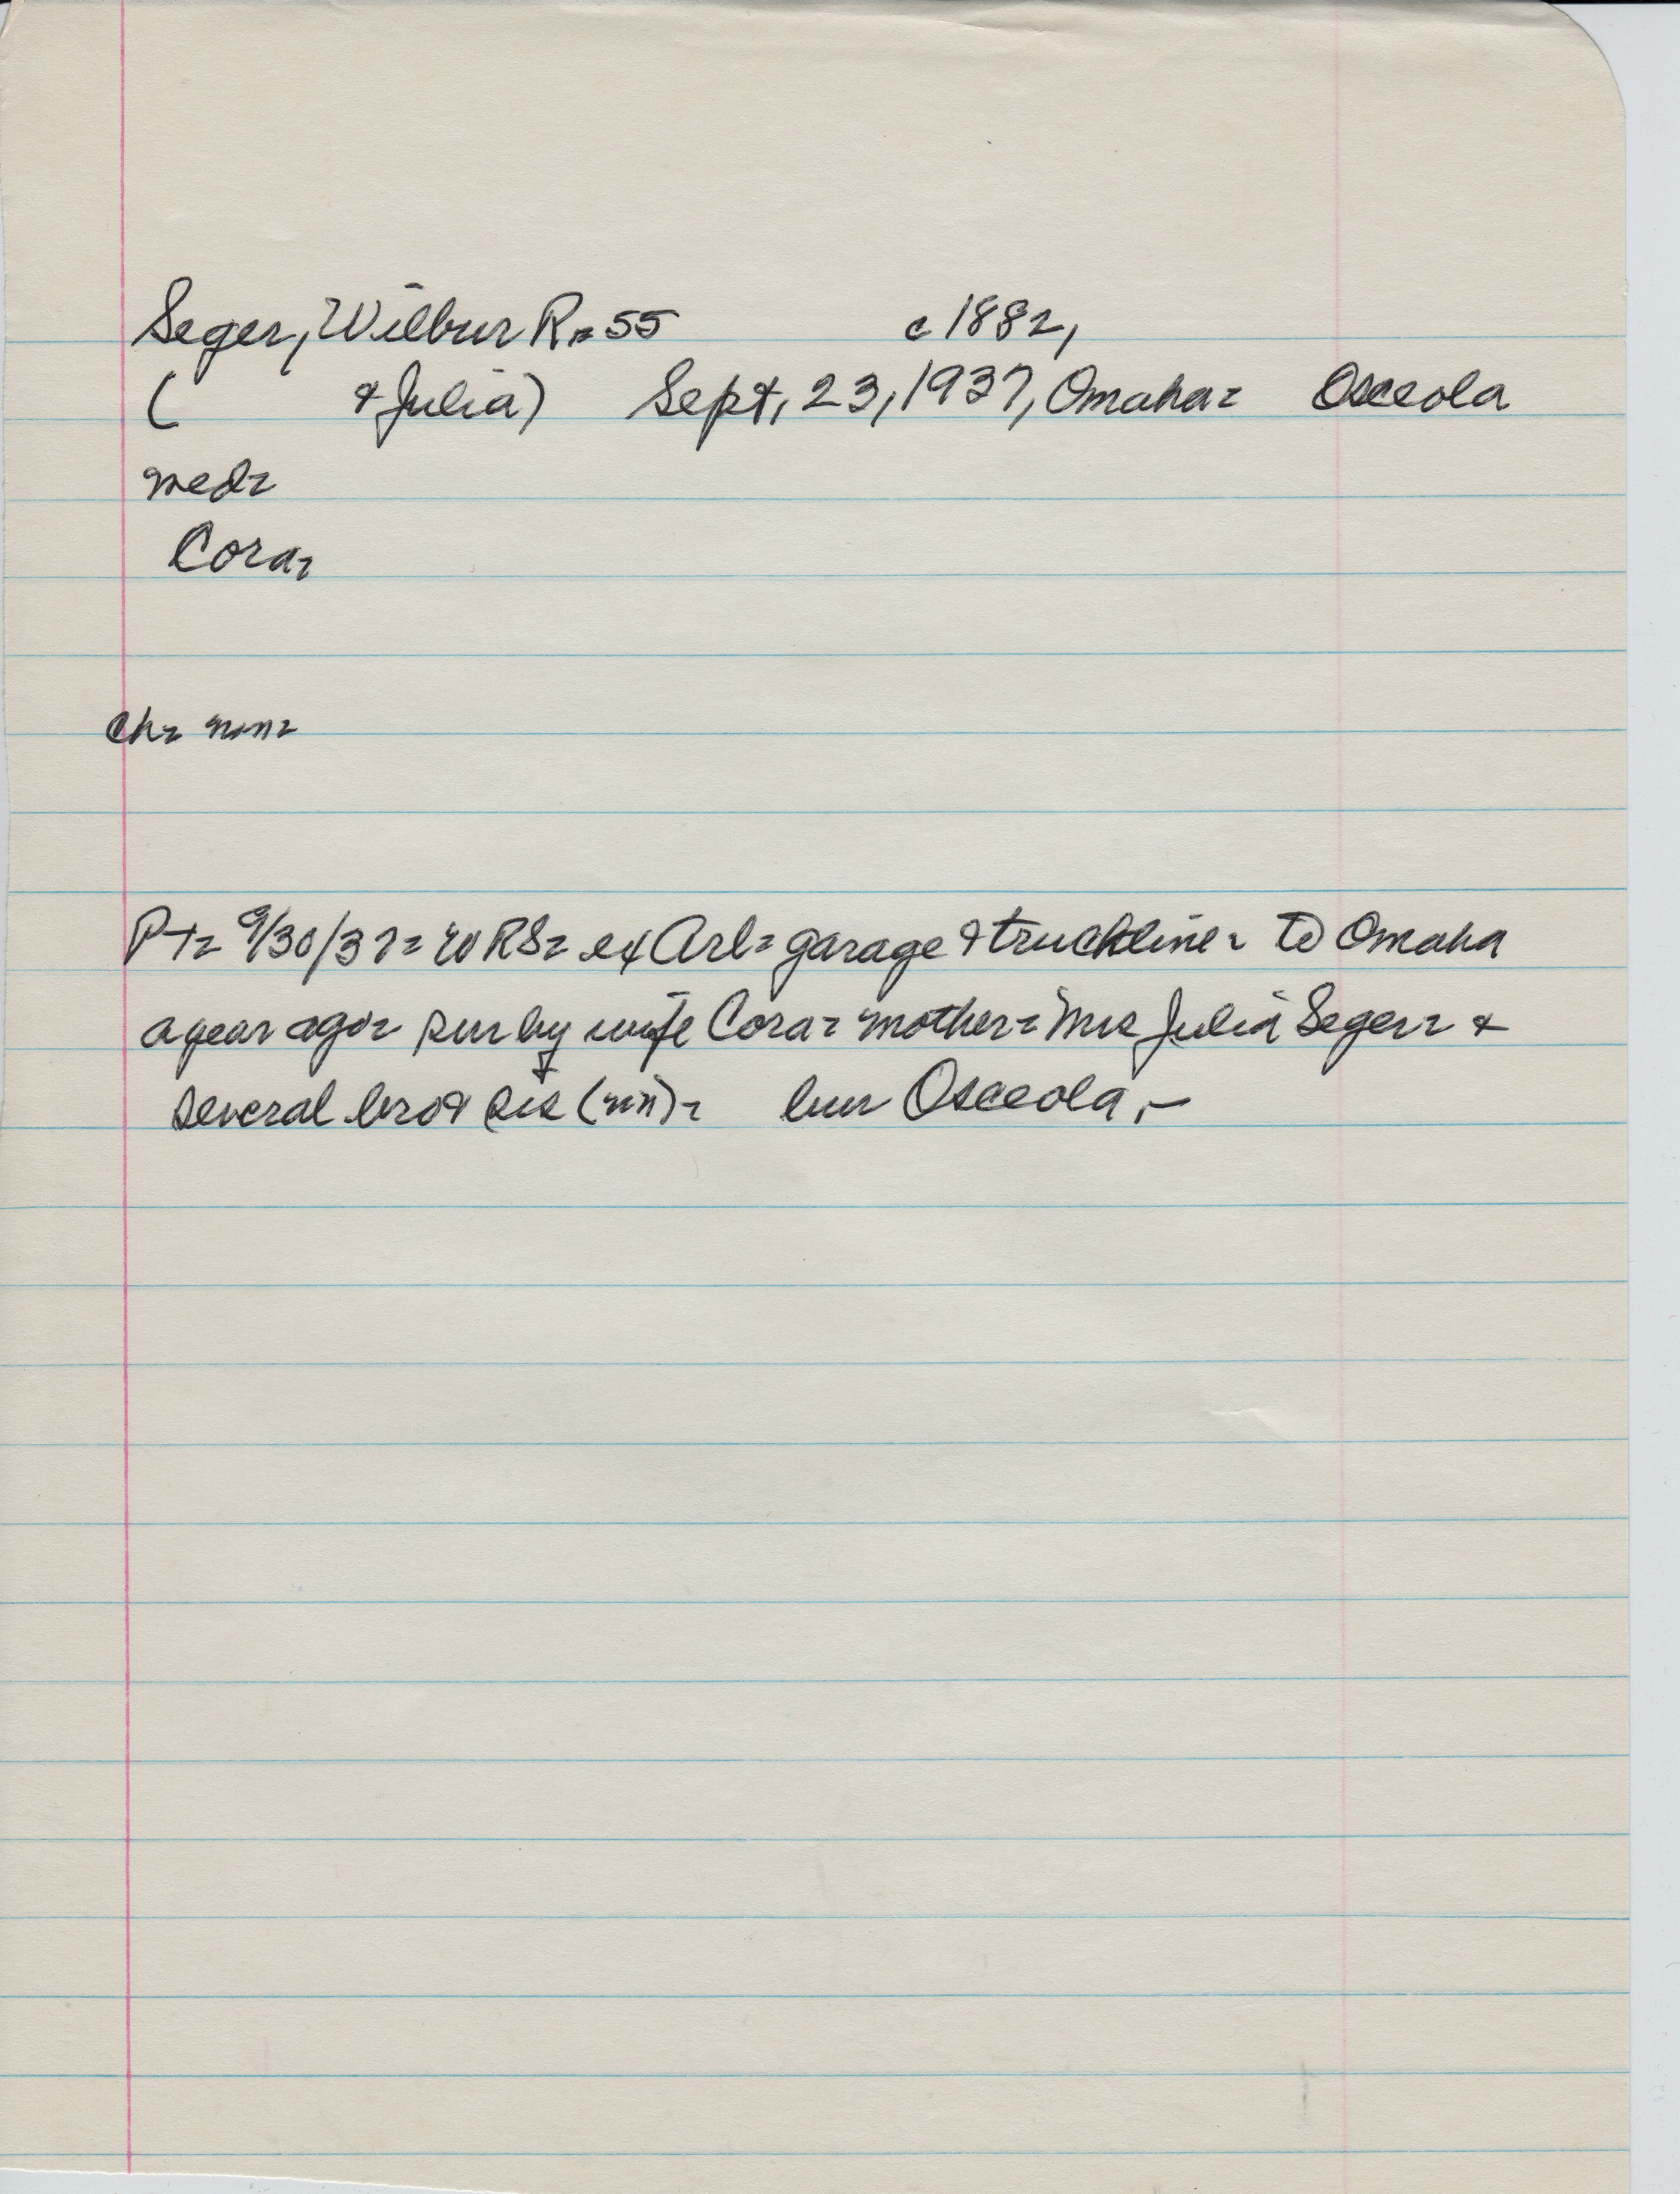 Seger, Wilbur R= 55 c 1882,
( & Julia) Sept, 23, 1937, Omaha= Osceola
med=
Cora=
Ch= non=
PT= 9/30/37= WRS= ex Arl= garage & truckline= to Omaha
a year ago= sur by wife Cora= mother= Mrs Julia Seger= &
several bro & sis (nn)= bur Osceola,-